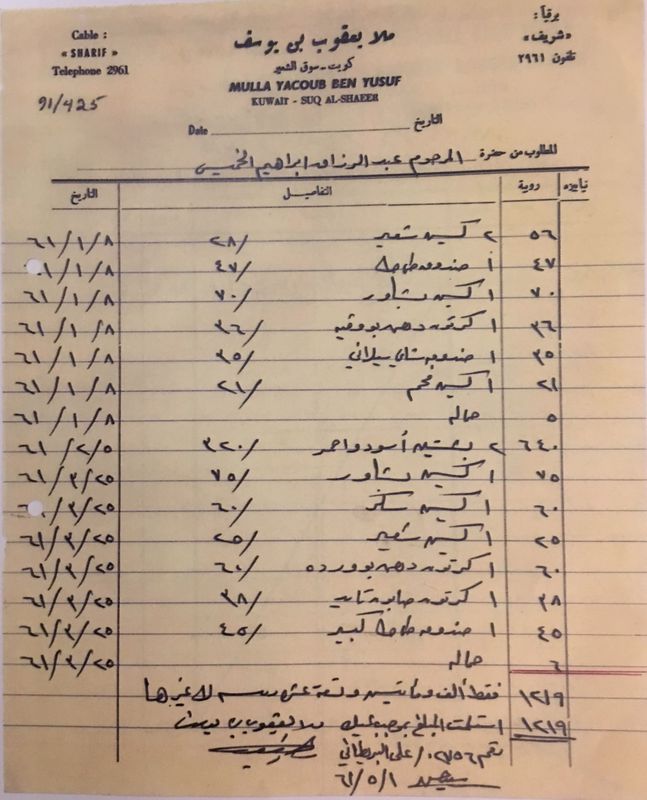 Cable :
« SHARIF »
Telephone 2961
ملا يعقوب بن يوسف
كويت - سوق الشعير
MULLA YACOUB BEN YUSUF
KUWAIT - SUQ AL-SHAEER
برقياً :
«شريف»
تلفون ٢٩٦١
91/425
Date التاريخ
المطلوب من حضرة المرحوم عبد الرزاق ابراهيم الخميس
نايبزه روبية التفاصيل التاريخ
٥٦ ٢ كيس شعير ٢٨/ ٦١/١/٨
٤٧ ١ صندوق طماط ٤٧/ ١/١/٨
٧٠ ١ كيس بشاور ٧٠/ ٦١/١/٨
٣٦ ١ كرتون دهن بووقيه ٣٦/ ٦١/١/٨
٣٥ ١ صندوق شاي سيلاني ٣٥/ ٦١/١/٨
٢١ ١ كيس فحم ٢١/ ٦١/١/٨
٥ حماله ٦١/١/٨
٦٤٠ ٢ بشتين أسود واحمر ٣٢٠/ ٦١/٢/٥
٧٥ ١ كيس بشاور ٧٥/ ٦١/٣/٢٥
٦٠ ١ كيس سكر ٦٠/ ٣/٢٥
٢٥ ١ كيس شعير ٢٥/ ٦١/٣/٢٥
٦٠ ١ كرتون دهن بوورده ٦٠/ ٦١/٣/٢٥
٣٨ ١ كرتون صابون تايد ٣٨/ ٦١/٣/٢٥
٤٥ ١ صندوق طماط كبير ٤٥/ ٦١/٣/٢٥
٦ حماله ٦١/٣/٢٥
١٢١٩ فقط ألف ومأتين وتسعة عشر لا غيرها
١٢١٩ استلمت المبلغ بموجب شيك ملا يعقوب بن يوسف
رقم ٠٢٧٥٦/ على البريطاني
٦١/٥/١